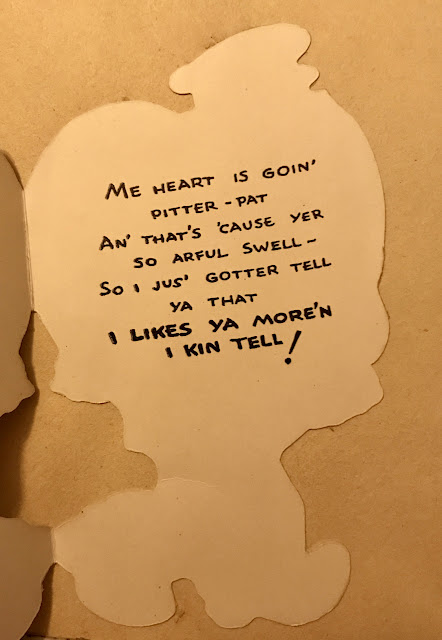 ME HEART IS GOIN'
PITTER-PAT
AN' THAT'S 'CAUSE YER
SO ARFUL SWELL~
SO I JUS' GOTTER TELL
YA THAT
I LIKES YA MORE'N
I KIN TELL!